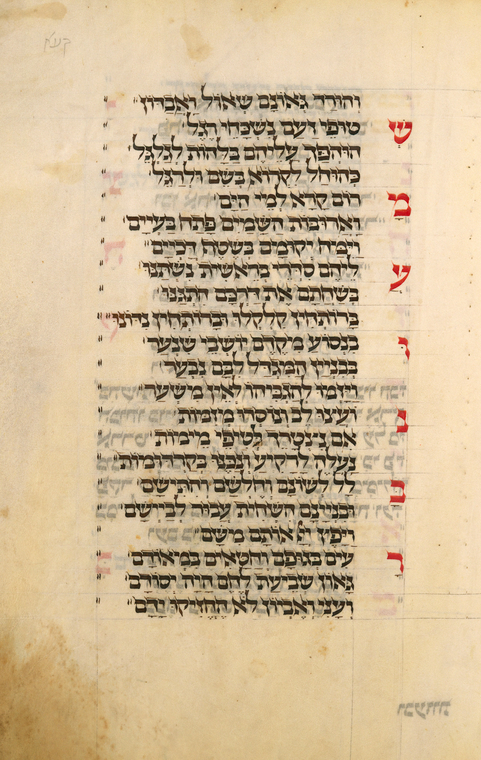 והורד גאונם שאול ואבדון
שטופי זעם נשכחי רגל
הוהפך עליהם בלהות לגלגל
כהוחל לקרוא בשם ולרגל
מרום קרא למי הים
ואריבות השמים פתח בעיים
וימח יקומים בשטף דכיים
עליהם סדרי בראשית נשתנו
בשחתם את דרכם
ברותחין קלקלו וברותחין נידונו
ובנסוע מקדם יושבי שנער
בבנין המגדל לבם נבער
ויזמו להגביהו לאין משער
נועצו לב ונוסדו מזמות
אם נצטרך לטופי מימות
נעלה לרקיע ונכנו בקרדומות
בלל לשונם וחלשם והתישם
ובנינם השחות עבור לביישם
ויפץ יי אותם משם
רעים בגופם וחטאים במאודם
גאון שביעת לחם היה יסודם
ועני ואביון לא החזיקו ידם